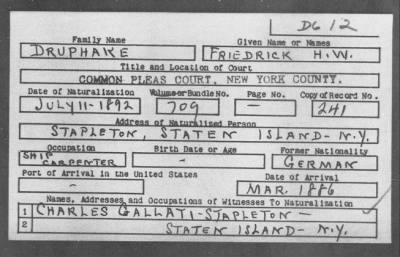 D612
Family Name Given Name or Names
DRUPHAKE FRIEDRICK H.W.
Title and Location of Court
COMMON PLEAS COURT, NEW YORK COUNTY.
Date of Naturalization Volume or Bundle No. Page No. Copy of Record No.
JULY 11-1892 709 — 241
Address of Naturalized Person
STAPLETON, STATEN ISLAND- N.Y.
Occupation Birth Date or Age Former Nationality
SHIP CARPENTER - GERMAN
Port of Arrival in the United States Date of Arrival
- MAR. 1886
Names, Addresses and Occupations of Witnesses To Naturalization
1 CHARLES GALLATI-STAPLETON —
2 STATEN ISLAND- N.Y.